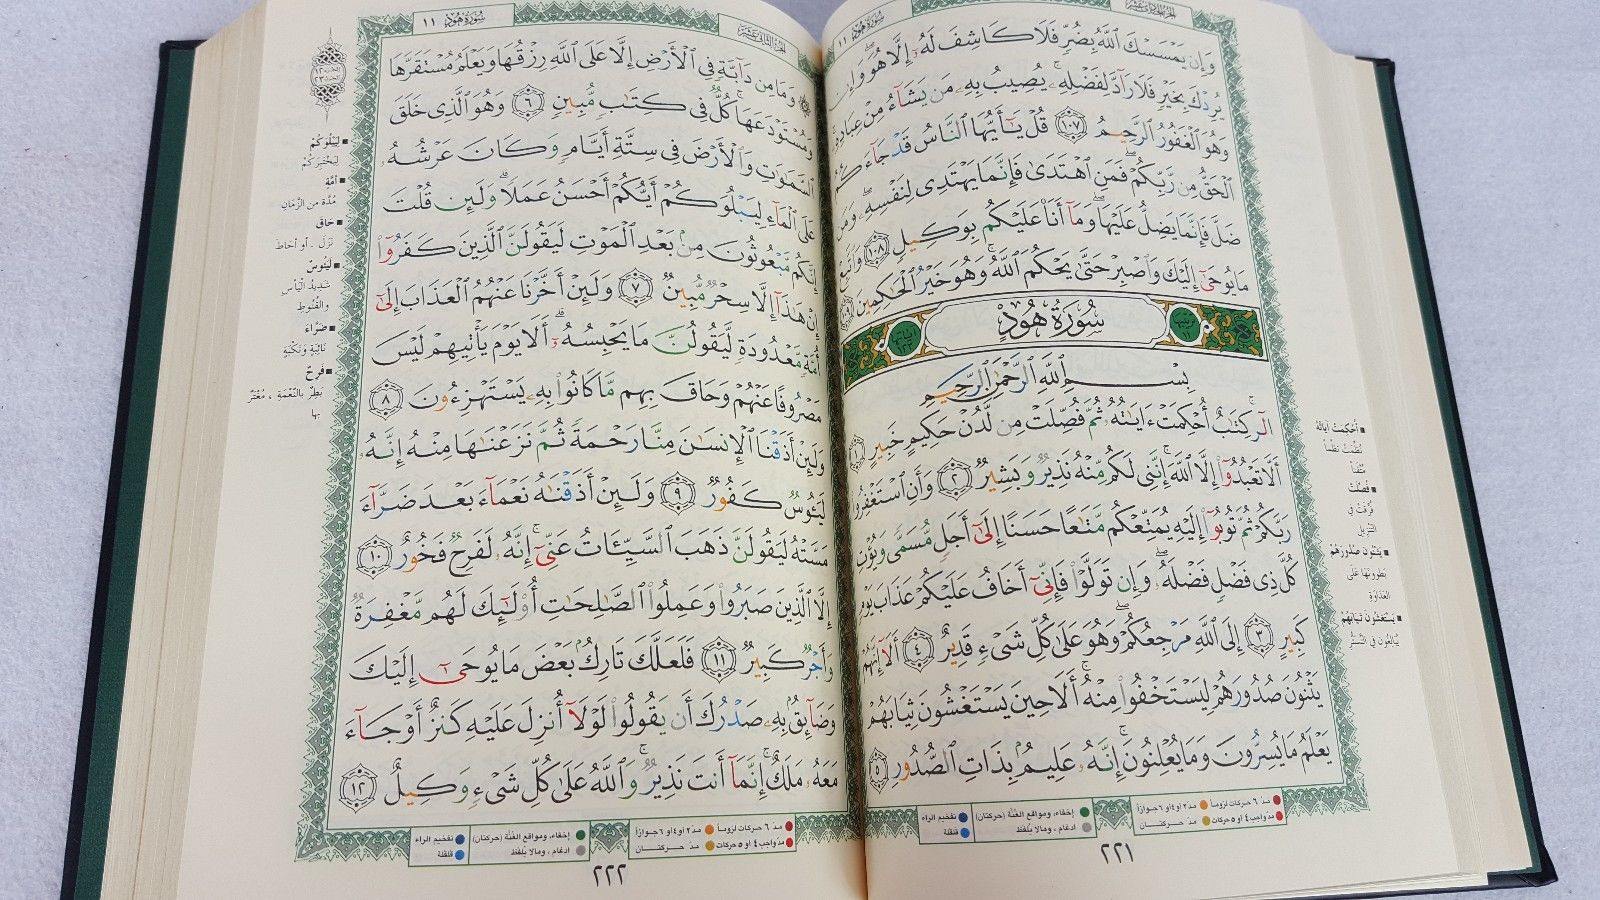 سُورَةُ هُودٍ ١١
الجزء الحادي عشر
وَإِن يَمْسَسْكَ ٱللَّهُ بِضُرٍّ فَلَا كَاشِفَ لَهُۥٓ إِلَّا هُوَ ۖ وَإِن
يُرِدْكَ بِخَيْرٍ فَلَا رَآدَّ لِفَضْلِهِۦ ۚ يُصِيبُ بِهِۦ مَن يَشَآءُ مِنْ عِبَادِهِۦ ۚ
وَهُوَ ٱلْغَفُورُ ٱلرَّحِيمُ ١٠٧ قُلْ يَـٰٓأَيُّهَا ٱلنَّاسُ قَدْ جَآءَكُمُ
ٱلْحَقُّ مِن رَّبِّكُمْ ۖ فَمَنِ ٱهْتَدَىٰ فَإِنَّمَا يَهْتَدِى لِنَفْسِهِۦ ۖ وَمَن
ضَلَّ فَإِنَّمَا يَضِلُّ عَلَيْهَا ۖ وَمَآ أَنَا۠ عَلَيْكُم بِوَكِيلٍ ١٠٨ وَٱتَّبِعْ
مَا يُوحَىٰٓ إِلَيْكَ وَٱصْبِرْ حَتَّىٰ يَحْكُمَ ٱللَّهُ ۚ وَهُوَ خَيْرُ ٱلْحَـٰكِمِينَ ١٠٩
سُورَةُ هُودٍ
بِسْمِ ٱللَّهِ ٱلرَّحْمَـٰنِ ٱلرَّحِيمِ
الٓر ۚ كِتَـٰبٌ أُحْكِمَتْ ءَايَـٰتُهُۥ ثُمَّ فُصِّلَتْ مِن لَّدُنْ حَكِيمٍ خَبِيرٍ ١
أَلَّا تَعْبُدُوٓا۟ إِلَّا ٱللَّهَ ۚ إِنَّنِى لَكُم مِّنْهُ نَذِيرٌ وَبَشِيرٌ ٢ وَأَنِ ٱسْتَغْفِرُوا۟
رَبَّكُمْ ثُمَّ تُوبُوٓا۟ إِلَيْهِ يُمَتِّعْكُم مَّتَـٰعًا حَسَنًا إِلَىٰٓ أَجَلٍ مُّسَمًّى وَيُؤْتِ
كُلَّ ذِى فَضْلٍ فَضْلَهُۥ ۖ وَإِن تَوَلَّوْا۟ فَإِنِّىٓ أَخَافُ عَلَيْكُمْ عَذَابَ يَوْمٍ
كَبِيرٍ ٣ إِلَى ٱللَّهِ مَرْجِعُكُمْ ۖ وَهُوَ عَلَىٰ كُلِّ شَىْءٍ قَدِيرٌ ٤ أَلَآ إِنَّهُمْ
يَثْنُونَ صُدُورَهُمْ لِيَسْتَخْفُوا۟ مِنْهُ ۚ أَلَا حِينَ يَسْتَغْشُونَ ثِيَابَهُمْ
يَعْلَمُ مَا يُسِرُّونَ وَمَا يُعْلِنُونَ ۚ إِنَّهُۥ عَلِيمٌۢ بِذَاتِ ٱلصُّدُورِ ٥
أُحْكِمَتْ آيَاتُهُ
نُظِّمَتْ نَظْماً
مُتْقَناً
فُصِّلَتْ
فُرِّقَتْ فِي
التَّنْزِيلِ
يَثْنُونَ صُدُورَهُمْ
يَطْوُونَهَا عَلَى
العَدَاوَةِ
يَسْتَغْشُونَ ثِيَابَهُمْ
يُبَالِغُونَ فِي التَّسَتُّرِ
مدّ ٦ حركات لزوماً مدّ ٢ أو ٤ أو ٦ جوازاً
مدّ واجب ٤ أو ٥ حركات مدّ حركتان
إخفاء، ومواقع الغُنَّة (حركتان) تفخيم الراء
ادغام، وما لا يُلفظ قلقلة
٢٢١
سُورَةُ هُودٍ ١١
الجزء الثاني عشر
وَمَا مِن دَآبَّةٍ فِى ٱلْأَرْضِ إِلَّا عَلَى ٱللَّهِ رِزْقُهَا وَيَعْلَمُ مُسْتَقَرَّهَا
وَمُسْتَوْدَعَهَا ۚ كُلٌّ فِى كِتَـٰبٍ مُّبِينٍ ٦ وَهُوَ ٱلَّذِى خَلَقَ
ٱلسَّمَـٰوَٰتِ وَٱلْأَرْضَ فِى سِتَّةِ أَيَّامٍ وَكَانَ عَرْشُهُۥ
عَلَى ٱلْمَآءِ لِيَبْلُوَكُمْ أَيُّكُمْ أَحْسَنُ عَمَلًا ۗ وَلَئِن قُلْتَ
إِنَّكُم مَّبْعُوثُونَ مِنۢ بَعْدِ ٱلْمَوْتِ لَيَقُولَنَّ ٱلَّذِينَ كَفَرُوٓا۟
إِنْ هَـٰذَآ إِلَّا سِحْرٌ مُّبِينٌ ٧ وَلَئِنْ أَخَّرْنَا عَنْهُمُ ٱلْعَذَابَ إِلَىٰٓ
أُمَّةٍ مَّعْدُودَةٍ لَّيَقُولُنَّ مَا يَحْبِسُهُۥٓ ۗ أَلَا يَوْمَ يَأْتِيهِمْ لَيْسَ
مَصْرُوفًا عَنْهُمْ وَحَاقَ بِهِم مَّا كَانُوا۟ بِهِۦ يَسْتَهْزِءُونَ ٨
وَلَئِنْ أَذَقْنَا ٱلْإِنسَـٰنَ مِنَّا رَحْمَةً ثُمَّ نَزَعْنَـٰهَا مِنْهُ إِنَّهُۥ
لَيَـُٔوسٌ كَفُورٌ ٩ وَلَئِنْ أَذَقْنَـٰهُ نَعْمَآءَ بَعْدَ ضَرَّآءَ
مَسَّتْهُ لَيَقُولَنَّ ذَهَبَ ٱلسَّيِّـَٔاتُ عَنِّىٓ ۚ إِنَّهُۥ لَفَرِحٌ فَخُورٌ ١٠
إِلَّا ٱلَّذِينَ صَبَرُوا۟ وَعَمِلُوا۟ ٱلصَّـٰلِحَـٰتِ أُو۟لَـٰٓئِكَ لَهُم مَّغْفِرَةٌ
وَأَجْرٌ كَبِيرٌ ١١ فَلَعَلَّكَ تَارِكٌۢ بَعْضَ مَا يُوحَىٰٓ إِلَيْكَ
وَضَآئِقٌۢ بِهِۦ صَدْرُكَ أَن يَقُولُوا۟ لَوْلَآ أُنزِلَ عَلَيْهِ كَنزٌ أَوْ جَآءَ
مَعَهُۥ مَلَكٌ ۚ إِنَّمَآ أَنتَ نَذِيرٌ ۚ وَٱللَّهُ عَلَىٰ كُلِّ شَىْءٍ وَكِيلٌ ١٢
لِيَبْلُوَكُمْ
لِيَخْتَبِرَكُمْ
أُمَّةٍ
مُدَّة مِن الزَّمَانِ
حَاقَ
نَزَلَ ـ أو أحَاطَ
لَيَئُوسٌ
شَدِيدُ اليَأْسِ
والقُنُوطِ
ضَرَّاءَ
نَائِبَةٍ وَنَكْبَةٍ
فَرِحٌ
بَطِرٌ بالنِّعْمَةِ ، مُغْتَرٌّ
بِهَا
مدّ ٦ حركات لزوماً مدّ ٢ أو ٤ أو ٦ جوازاً
مدّ واجب ٤ أو ٥ حركات مدّ حركتان
إخفاء، ومواقع الغُنَّة (حركتان) تفخيم الراء
ادغام، وما لا يُلفظ قلقلة
٢٢٢